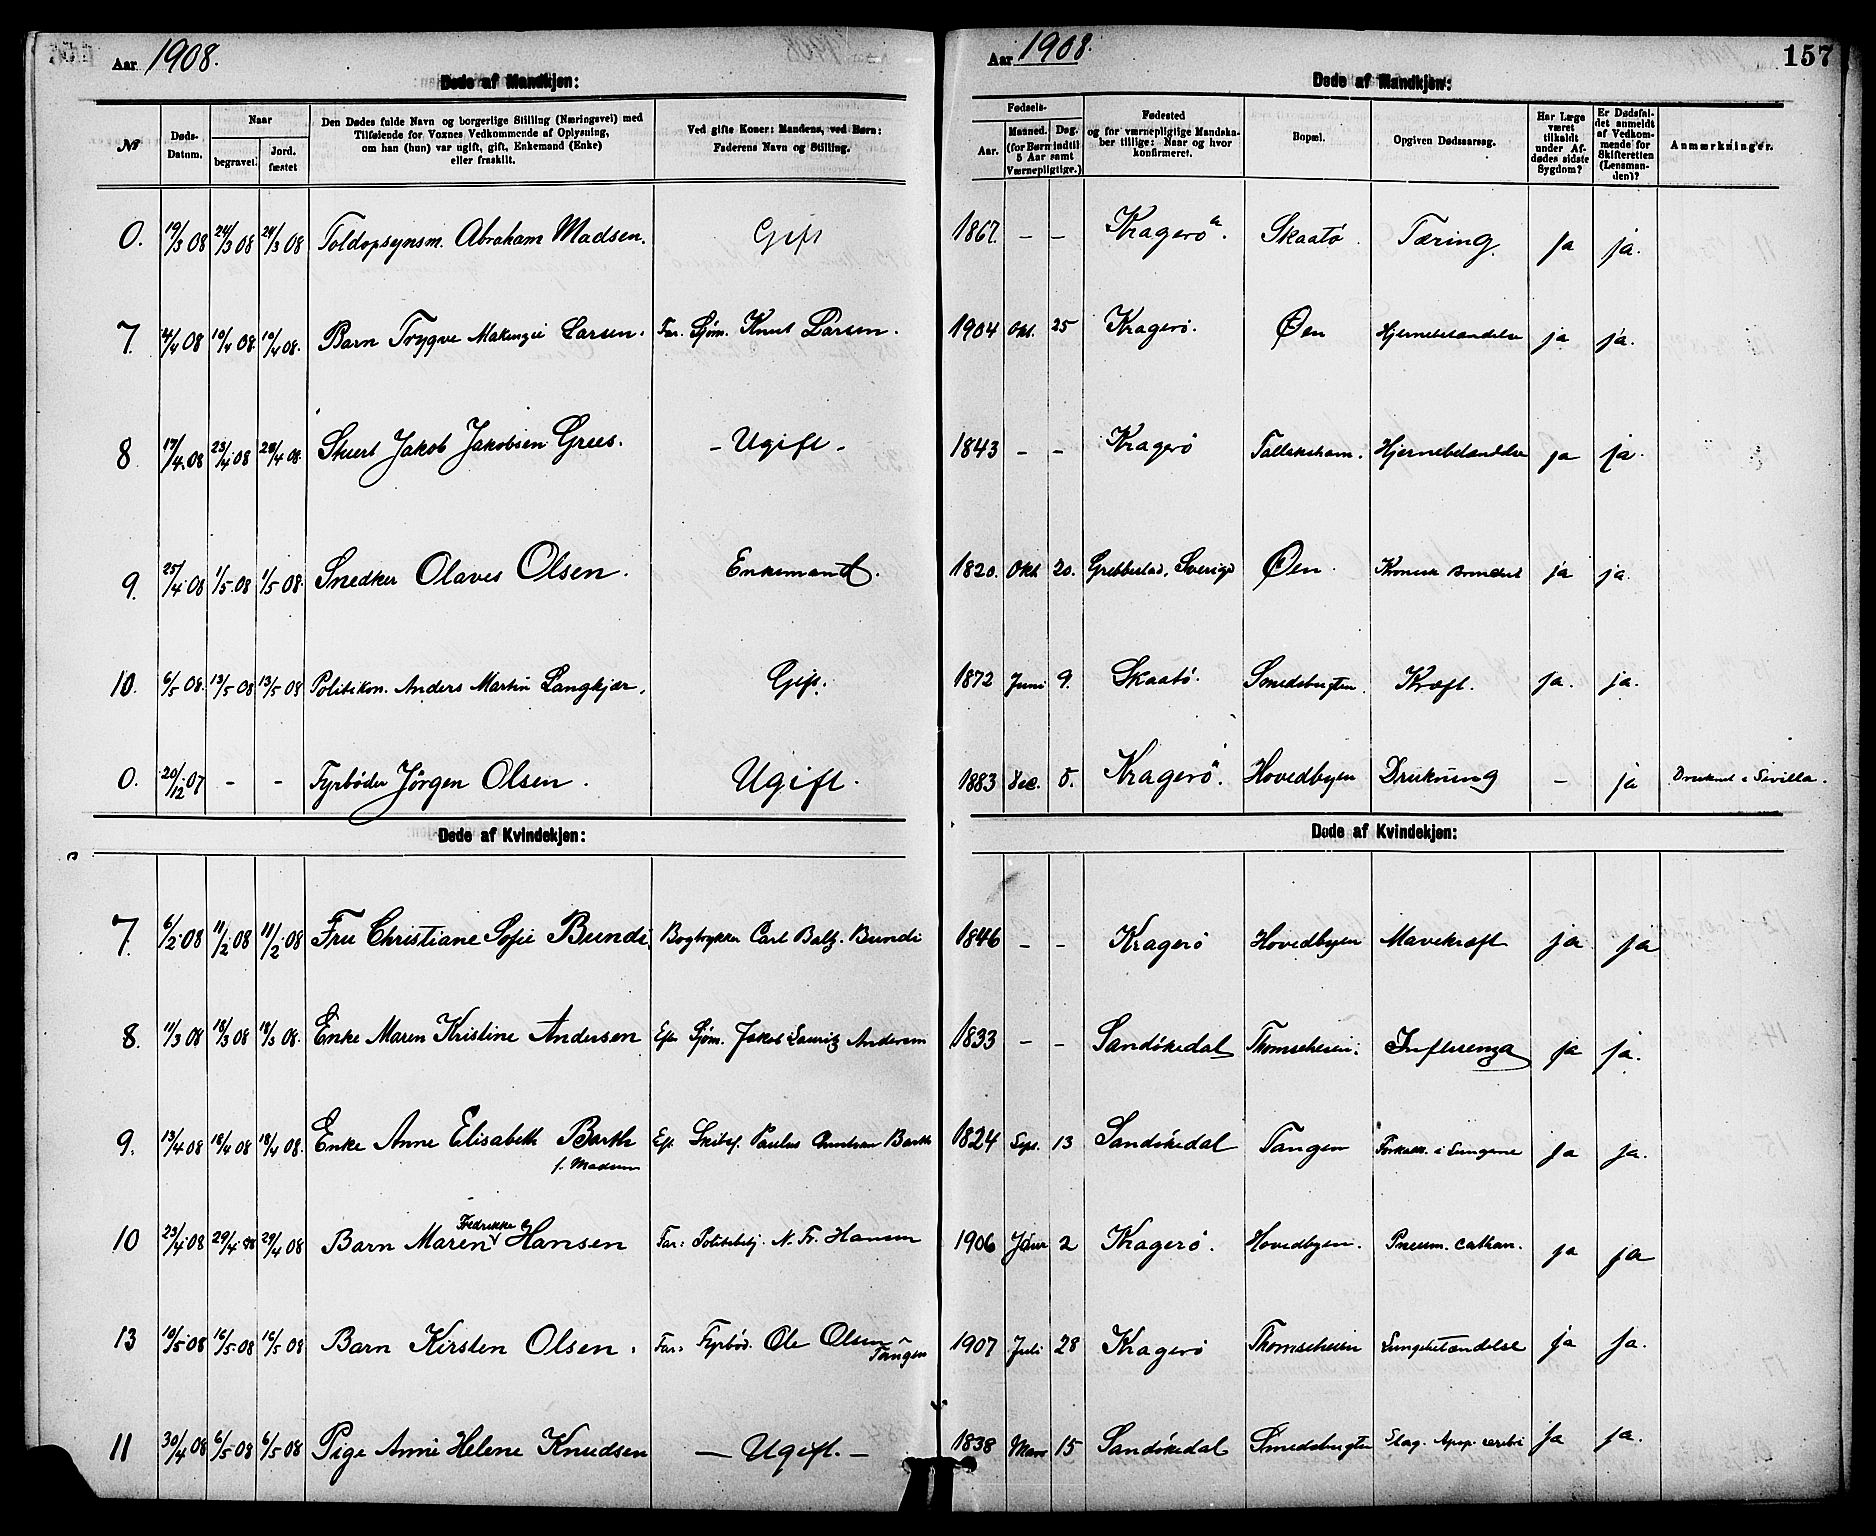 Aar 1908.
Døde af Mandkjøn:
№
Døds-Datum.
Naar
begravet.
Jord-fæstet
Den Dødes fulde Navn og borgerlige Stilling (Næringsvei) med
Tilføiende for Voxnes Vedkommende af Oplysning,
om han (hun) var ugift, gift, Enkemand (Enke)
eller fraskilt.
Ved gifte Koner: Mandens, ved Børn:
Faderens Navn og Stilling.
Aar 1908.
157
Døde af Mandkjøn:
Fødsels-
Aar.
Maaned. Dag.
(for Børn indtil
5 Aar samt
Værnepligtige.)
Fødested
og for værnepligtige Mandska-
ber tillige: Naar og hvor
konfirmeret.
Bopæl.
Opgiven Dødsaarsag.
Har Læge
været
tilkaldt
under Af-
dødes sidste
Sygdom?
Er Dødsfal-
det anmeldt
af Vedkom-
mende for
Skifteretten
(Lensman-
den)?
Anmærkninger.
0. 19/3 08 24/3 08 24/3 08 Toldopsynsm. Abraham Madsen. Gift 1867. – – Kragerø. Skaatø Tæring. ja ja.
7. 4/4 08 10/4 08 10/4 08. Barn Trygve Makenzie Larsen. Far. Sjøm. Knut Larsen. 1904 Okt. 25 Kragerø. Øen Hjernebetændelse ja ja.
8. 17/4 08 23/4 08 23/4 08. Stuert Jakob Jakobsen Grees. – Ugift – 1843 – – Kragerø Tallakshavn. Hjernebetændelse ja ja.
9. 25/4 08 1/5 08 1/5 08. Snedker Olaves Olsen. Enkemand. 1820. Okt. 20. Grebbestad, Sverige Øen. Kronisk ja ja.
10. 6/5 08. 13/5 08 13/5 08 Politikon. Anders Martin Langkjær. Gift. 1872 Juni 9. Skaatø. Smedsbugten. Kræft. ja. ja.
0. 20/12 07 – – Fyrbøder Jørgen Olsen. Ugift. 1883 Dec. 5. Kragerø. Hovedbyen Drukning – ja Druknet i Sevilla.
Døde af Kvindekjøn:
Døde af Kvindekjøn:
7. 6/2 08 11/2 08 11/2 08 Fru Christiane Sofie Bundi Bogtrykker Carl Baltz. Bundi 1846 – – Kragerø Hovedbyen Mavekræft ja ja
8. 11/3 08 18/3 08 18/3 08. Enke Maren Kristine Andersen Eft. Sjøm. Jakob Lauritz Andersen 1833 – – Sandøkedal Thomseheien. Influenza ja ja.
9. 13/4 08 18/4 08 18/4 08. Enke Anne Elisabeth Barth Eft. Skibsf. Paulus Barth 1824 Sept. 13 Sandøkedal Tangen Forkalk. i Lungerne ja ja.
f. Madsen
10 23/4 08 29/4 08 29/4 08 Barn Maren Fredrikke Hansen Far: Politibetj. N. Fr. Hansen 1906 Januar 2 Kragerø. Hovedbyen. Pneum. cathar. ja ja
13 10/5 08 16/5 08 16/5 08 Barn Kirsten Olsen. Far: Fyrbød. Ole Olsen – Tangen 1907 Juli 28 Kragerø Thomseheien Lungebetændelse ja ja.
11 30/4 08 6/5 08 6/5 08 Pige Anne Helene Knudsen – Ugift. – 1838 Mars 15 Sandøkedal Smedsbugten Slag. Apop. cerebri ja ja.